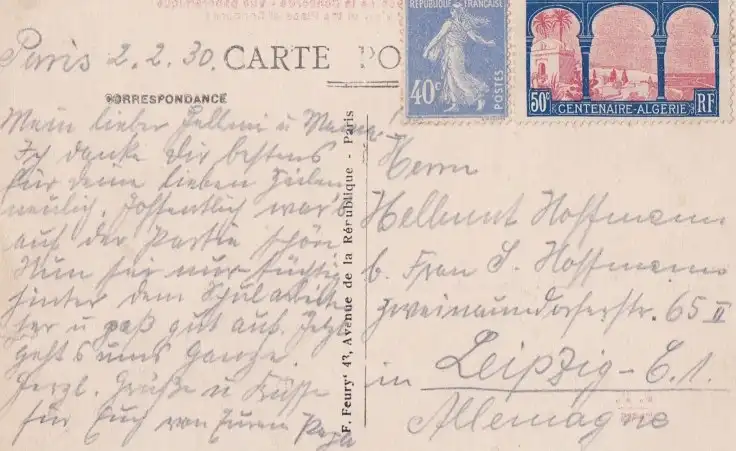 Paris 2.2.30.
CARTE PO
CORRESPONDANCE
Mein lieber Hellmu u
Ich danke Dir bestens
für Deine lieben Zeilen
neulich. Hoffentlich war's
auf der Partie schön
Nun sei nur tüchtig
hinter dem
her u paß gut auf. Jetzt
geht's ums Ganze.
Herzl. Grüße u Küsse
für Euch von Eurem Papa
F. Feury' 43, Avenue de la République - Paris
REPUBLIQUE FRANÇAISE
40c
POSTES
50c CENTENAIRE-ALGÉRIE RF
Herrn
Hellmut Hoffmann
b. Frau S. Hoffmann
Zweinaundorferstr. 65 II
in Leipzig-C.1.
Allemagne